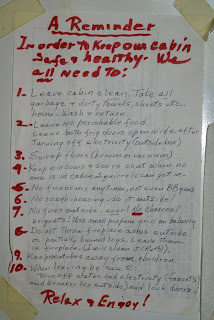 A Reminder
In order to keep our cabin
safe & healthy - We
all need to:
1. Leave cabin clean. Take all
garbage & dirty towels, sheets etc.
home. Wash & return
2. Leave no perishable food.
Leave both frig doors open wide after
turning off electricity (outside box)
3. Sweep floors (broom or vacuum)
4. Keep windows & doors shut when no
one is at cabin. Squirrels can get in.
5. No firearms anytime, not even BB guns
6. No rough-housing - do it outside
7. No fires outside - ever! No charcoal
briquets! Use small propane grill on balcony
8. Do not throw fireplace ashes outside
or partially burned logs. Leave them
in fireplace. (I will clean it out!)
9. Keep matches away from children.
10. When leaving be sure to:
Turn off water, and electricity (faucets
and breaker box outside) and lock doors.
Relax & Enjoy!